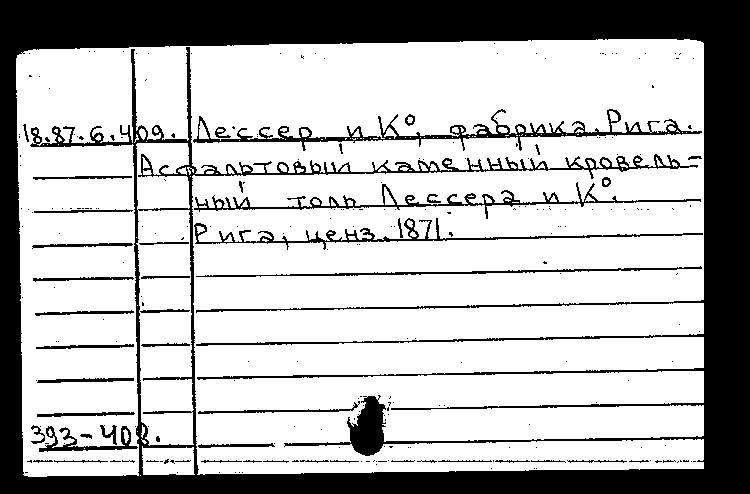 18.87.6.409. Лессер и К°, фабрика. Рига.
Асфальтовый каменный кровель-
ный толь Лессера и К°.
Рига, ценз. 1871.
393-408.